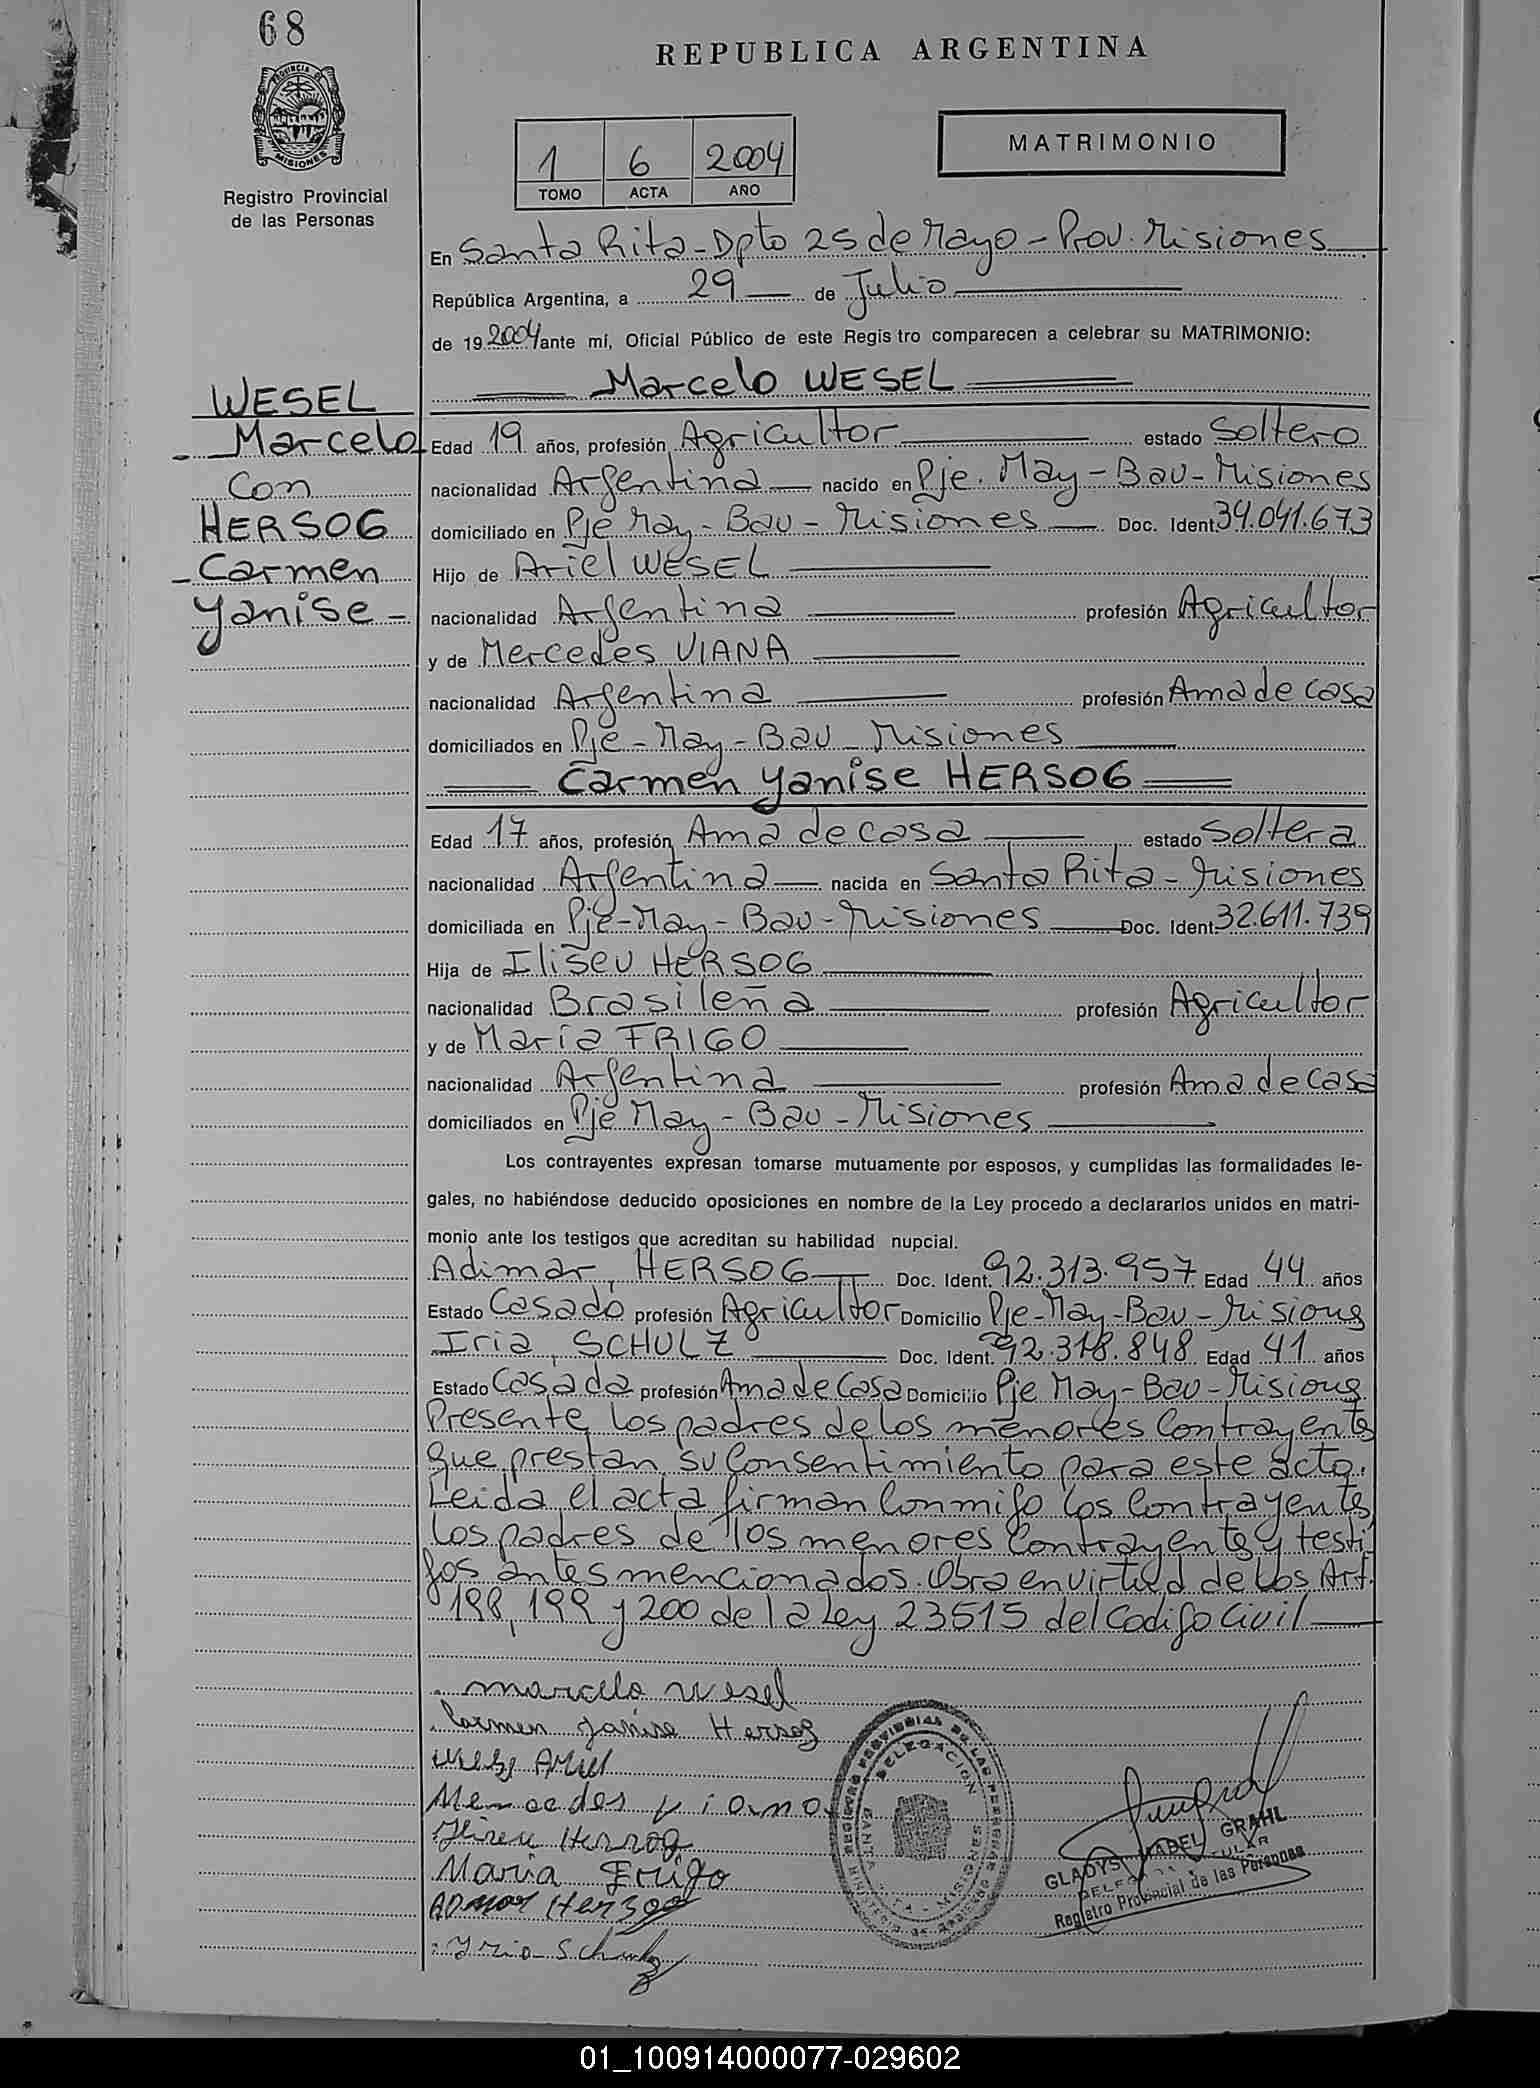 68
REPUBLICA ARGENTINA
PROVINCIA DE MISIONES
Registro Provincial
de las Personas
MATRIMONIO
1 6 2004
TOMO ACTA AÑO
En Santa Rita - Dpto 25 de Mayo - Prov. Misiones
República Argentina, a 29 de Julio
de 19 2004 ante mí, Oficial Público de este Registro comparecen a celebrar su MATRIMONIO:
Marcelo WESEL
WESEL
Marcelo
Con
HERSOG
Carmen
Yanise
Edad 19 años, profesión Agricultor estado Soltero
nacionalidad Argentina nacido en Pje. May - Bov - Misiones
domiciliado en Pje May - Bov - Misiones Doc. Ident. 34.041.673
Hijo de Ariel WESEL
nacionalidad Argentina profesión Agricultor
y de Mercedes VIANA
nacionalidad Argentina profesión Ama de casa
domiciliados en Pje - May - Bov - Misiones
Carmen Yanise HERSOG
Edad 17 años, profesión Ama de casa estado Soltera
nacionalidad Argentina nacida en Santa Rita - Misiones
domiciliada en Pje - May - Bov - Misiones Doc. Ident. 32.611.739
Hija de Iliseu HERSOG
nacionalidad Brasileña profesión Agricultor
y de María FRIGO
nacionalidad Argentina profesión Ama de casa
domiciliados en Pje May - Bov - Misiones
Los contrayentes expresan tomarse mutuamente por esposos, y cumplidas las formalidades le-
gales, no habiéndose deducido oposiciones en nombre de la Ley procedo a declararlos unidos en matri-
monio ante los testigos que acreditan su habilidad nupcial.
Adimar, HERSOG Doc. Ident. 92.313.957 Edad 44 años
Estado Casado profesión Agricultor Domicilio Pje - May - Bov - Misiones
Iria, SCHULZ Doc. Ident. 92.318.848 Edad 41 años
Estado Casada profesión Ama de Casa Domicilio Pje May - Bov - Misiones
Presente los padres de los menores Contrayentes
que prestan su Consentimiento para este acto.
Leida el acta firman Conmigo los Contrayentes,
los padres de los menores Contrayentes y testi-
gos antes mencionados. Obra en virtud de los Art.
198, 199 y 200 de la Ley 23515 del Codigo Civil
marcelo wesel
Carmen Yanise Hersog
Ariel
Mercedes viana
Hersog
Maria Frigo
Hersog
Iria Schulz
REGISTRO PROVINCIAL DE LAS PERSONAS
DELEGACION
SANTA RITA - MISIONES
GLADYS MABEL GRAHL
Registro Provincial de las Personas
01_100914000077-029602